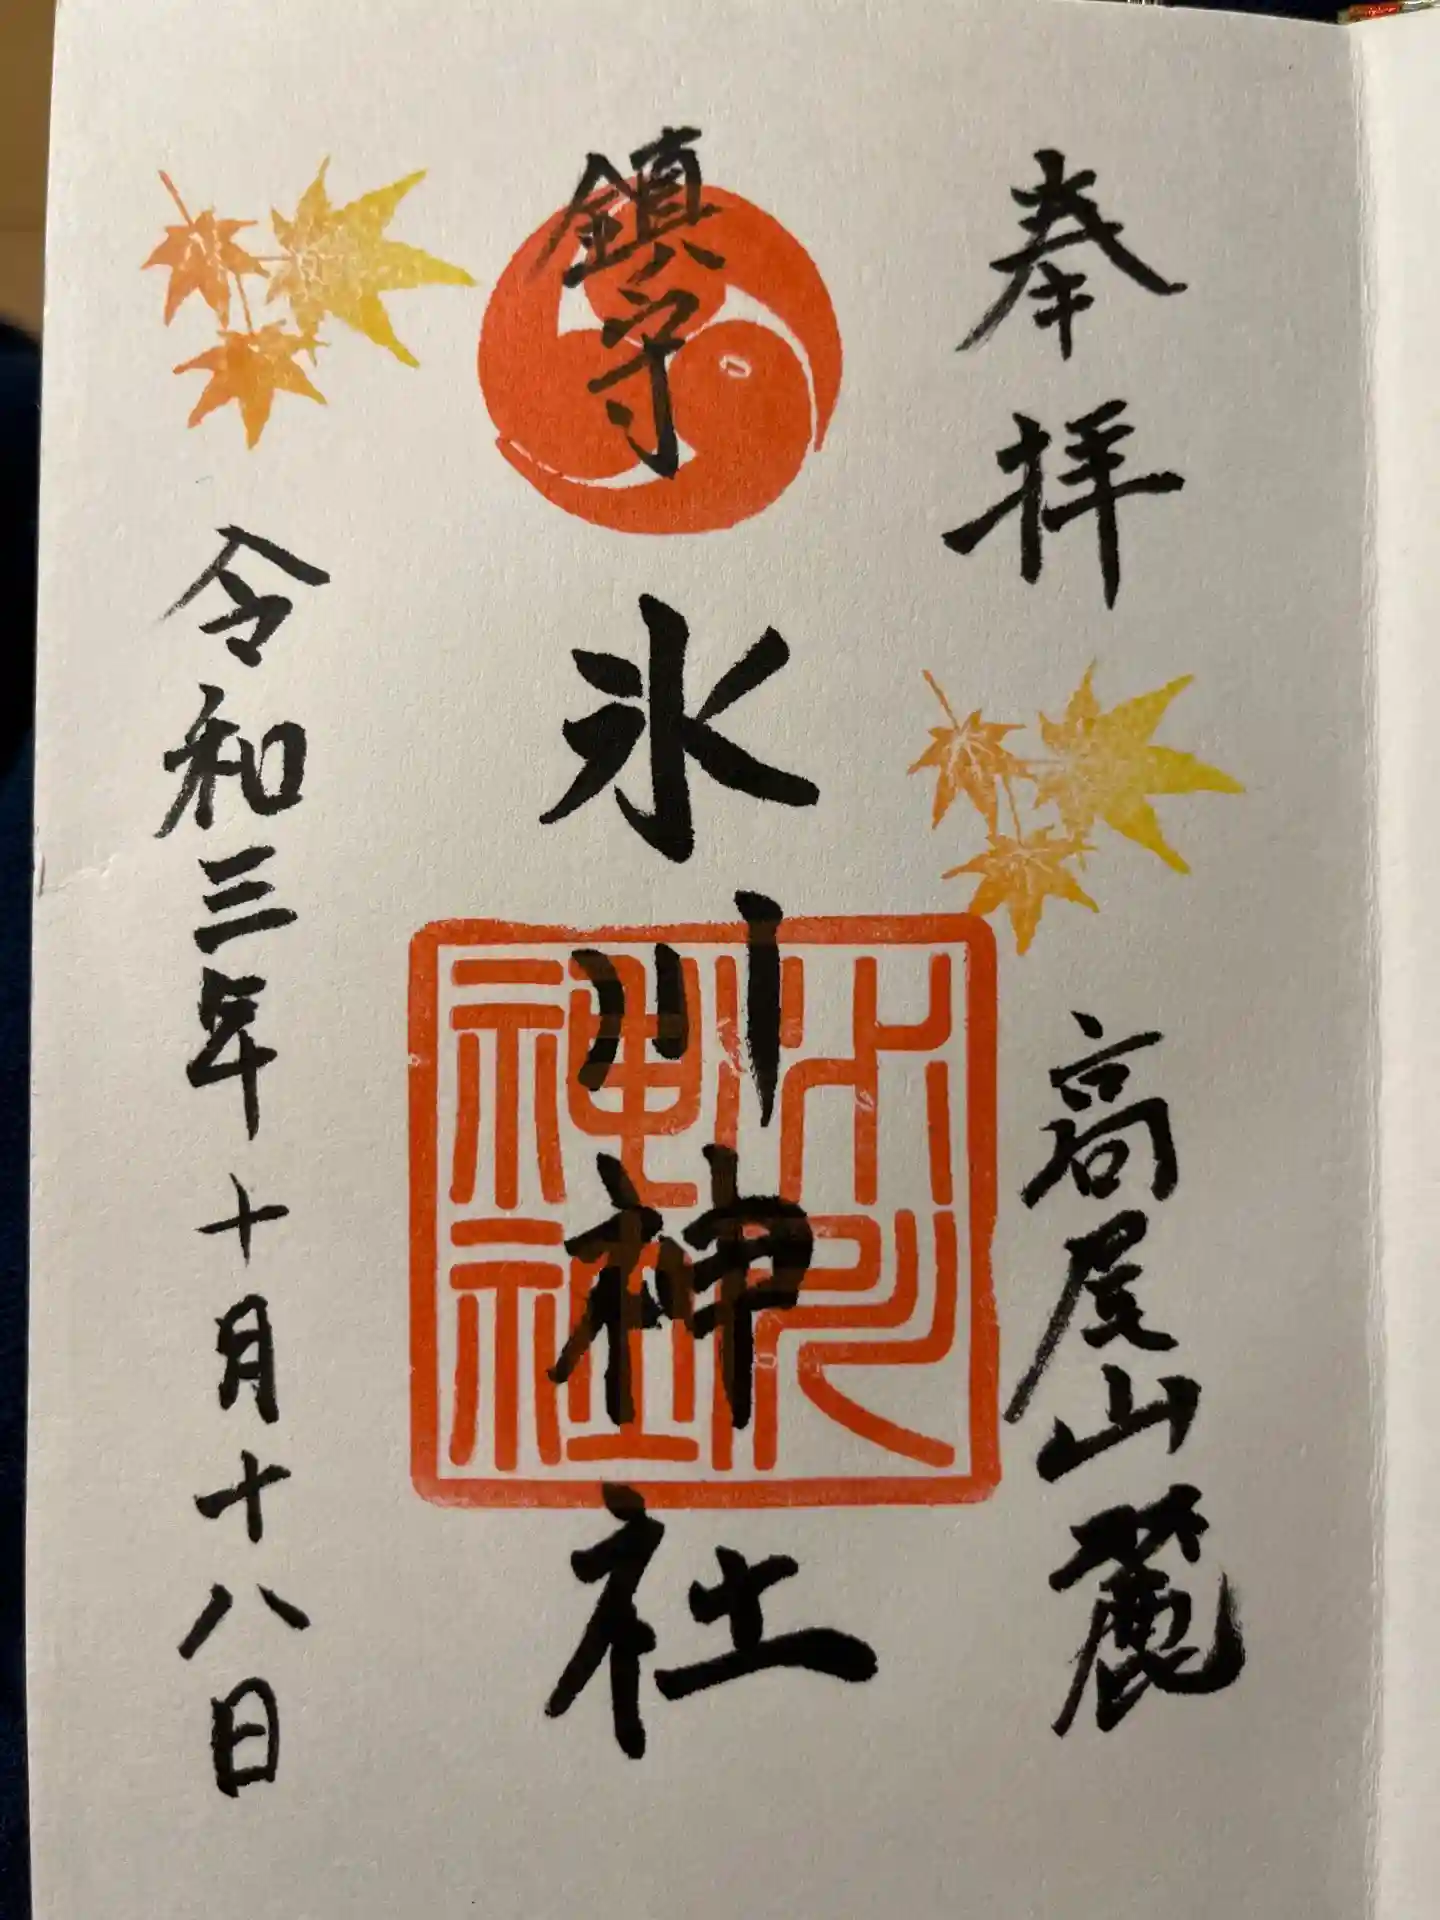 奉拝
高尾山麓
鎮守
氷川神社
氷川神社
令和三年十月十八日